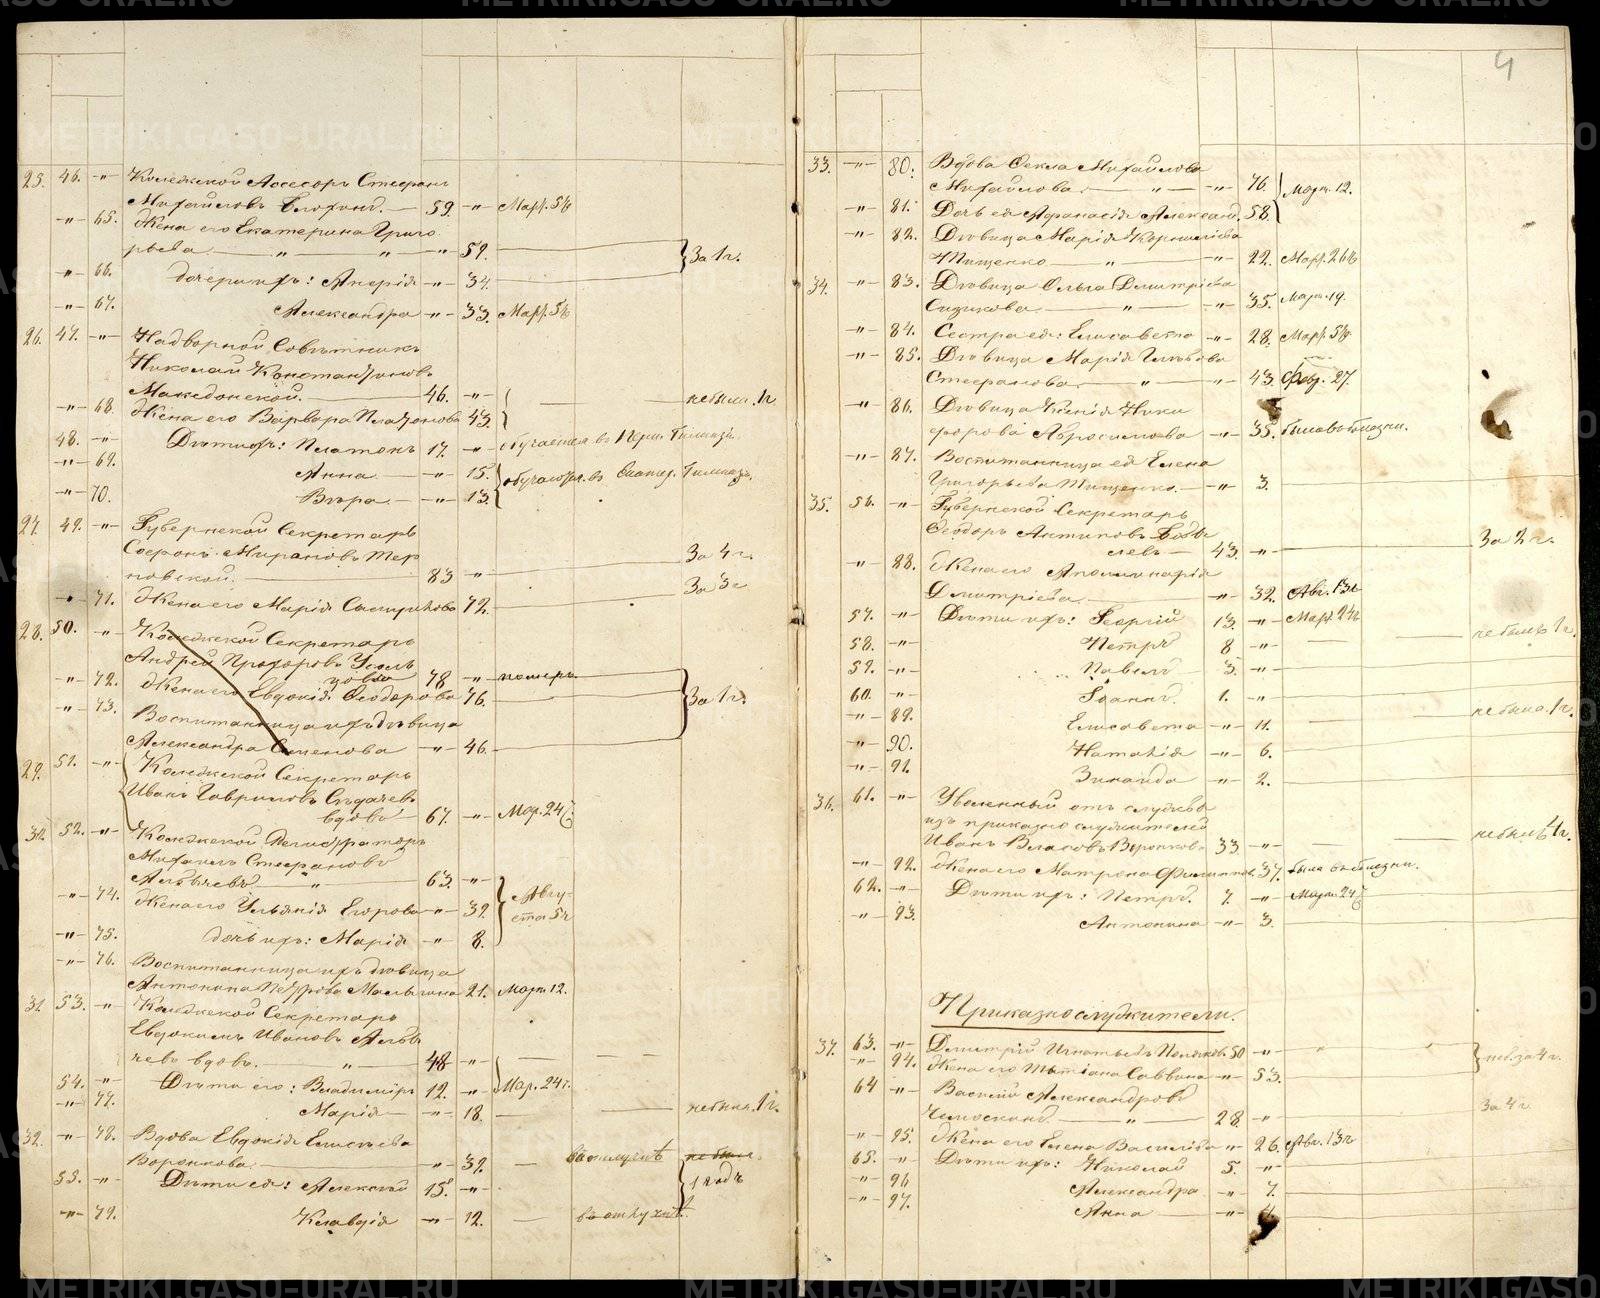 25. 46. -"- Коллежской Ассесоръ Стефанъ
Михайловъ 59. -"- Мар. 5
-"- 65. Жена его Екатерина Григо
рьева " " -"- 52. За 1 г.
-"- 66. дочери ихъ: -"- 34.
-"- 67. Александра -"- 33. Мар. 5
26. 47. -"- Надворной Совѣтникъ
Николай Константиновъ
Македонской. 46. -"- не былъ. 1 г
-"- 68. Жена его Варвара Платонова 43.
48. -"- Дѣти ихъ: Платонъ 17. -"- обучается въ Перм. Гимназ.
-"- 69. Анна -"- 15. обучаются въ Гимназ.
-"- 70. Вѣра -"- 13.
27. 49. -"- Губернской Секретарь
Софронъ Мироновъ Тер За 4 г.
новской. 83 -"-
-"- 71. Жена его Марія 72. За 3 г
28. 50. -"- Коллежской Секретарь
Андрей Прохоровъ
78 -"- померъ.
-"- 72. Жена его Евдокія Феодорова 76. За 1 г.
-"- 73. Воспитанница ихъ дѣвица
Александра Семенова -"- 46.
29. 51. -"- Коллежской Секретарь
Иванъ Гавриловъ
вдовъ 67. -"- Мар. 24
30. 52. -"- Коллежской Регистраторъ
Михаилъ Стефановъ
" 63. -"-
-"- 74. Жена его Ульянія Егорова -"- 39. Авгу
ста 5
-"- 75. дочь ихъ: Марія -"- 8.
-"- 76. Воспитанница ихъ дѣвица
Антонина Петрова Малыгина 21. Март. 12.
31. 53. -"- Коллежской Секретарь
Евдокимъ Ивановъ
вдовъ. " 48 -"-
54. -"- Дѣти его: Владиміръ 12. -"- Мар. 24
-"- 77. Марія -"- 18. не была. 1 г.
32. -"- 78. Вдова Евдокія Елисѣева
Воронкова -"- 39. не была.
55. -"- Дѣти ея: Алексѣй 15. -"- 1 годъ
-"- 79. Клавдія -"- 12.
4
33. -"- 80. Вдова Фекла Михайлова
Михайлова. " -"- 76. Март. 12.
-"- 81. Дочь ея Афанасія Александ. 58.
-"- 82. Дѣвица Марія Корнилиева
Тищенко " -"- 22. Мар. 26
34. -"- 83. Дѣвица Ольга Димитріева
Сизикова " -"- 35. Март. 19.
-"- 84. Сестра ея: Елисавета -"- 28. Мар. 5
-"- 85. Дѣвица Марія Глѣбова
Стефанова " -"- 43. Февр. 27.
-"- 86. Дѣвица Ксенія Ники
форова Абросимова -"- 35. была въ болѣзни.
-"- 87. Воспитанница ея Елена
Григорьева Тищенко. -"- 3.
35. 56. -"- Губернской Секретарь
Феодоръ Антиповъ
43. -"- За 2 г.
-"- 88. Жена его Аполлинарія
Димитріева -"- 32. Авг. 13
57. -"- Дѣти ихъ: Георгій 13. -"- Мар. 24
58. -"- Петръ 8 -"- не былъ 1 г.
59. -"- Павелъ 3. -"-
60. -"- Іоаннъ 1. -"-
-"- 89. Елисавета -"- 11. не была. 1 г.
-"- 90. Наталія -"- 6.
-"- 91. Зинаида -"- 2.
36. 61. -"- Уволенный отъ службы
изъ приказно служителей
Иванъ Власовъ Воронковъ 33. -"- не былъ 1 г.
-"- 92. Жена его Матрона Филипов. 37. была въ болѣзни.
62. -"- Дѣти ихъ: Петръ. 7. -"- Март. 24
-"- 93. Антонина -"- 3.
Приказнослужители.
37. 63. -"- Димитрій Игнатьевъ Поляковъ 50 -"- не б. за 4 г.
-"- 94. Жена его Татіана Саввина -"- 53.
64 -"- Василій Александровъ
" 28. -"- За 4 г
-"- 95. Жена его Елена Васильева -"- 26. Авг. 13
65. -"- Дѣти ихъ: Николай 5. -"-
-"- 96 Александра -"- 7.
-"- 97. Анна -"- 4.
METRIKI.GASO-URAL.RU